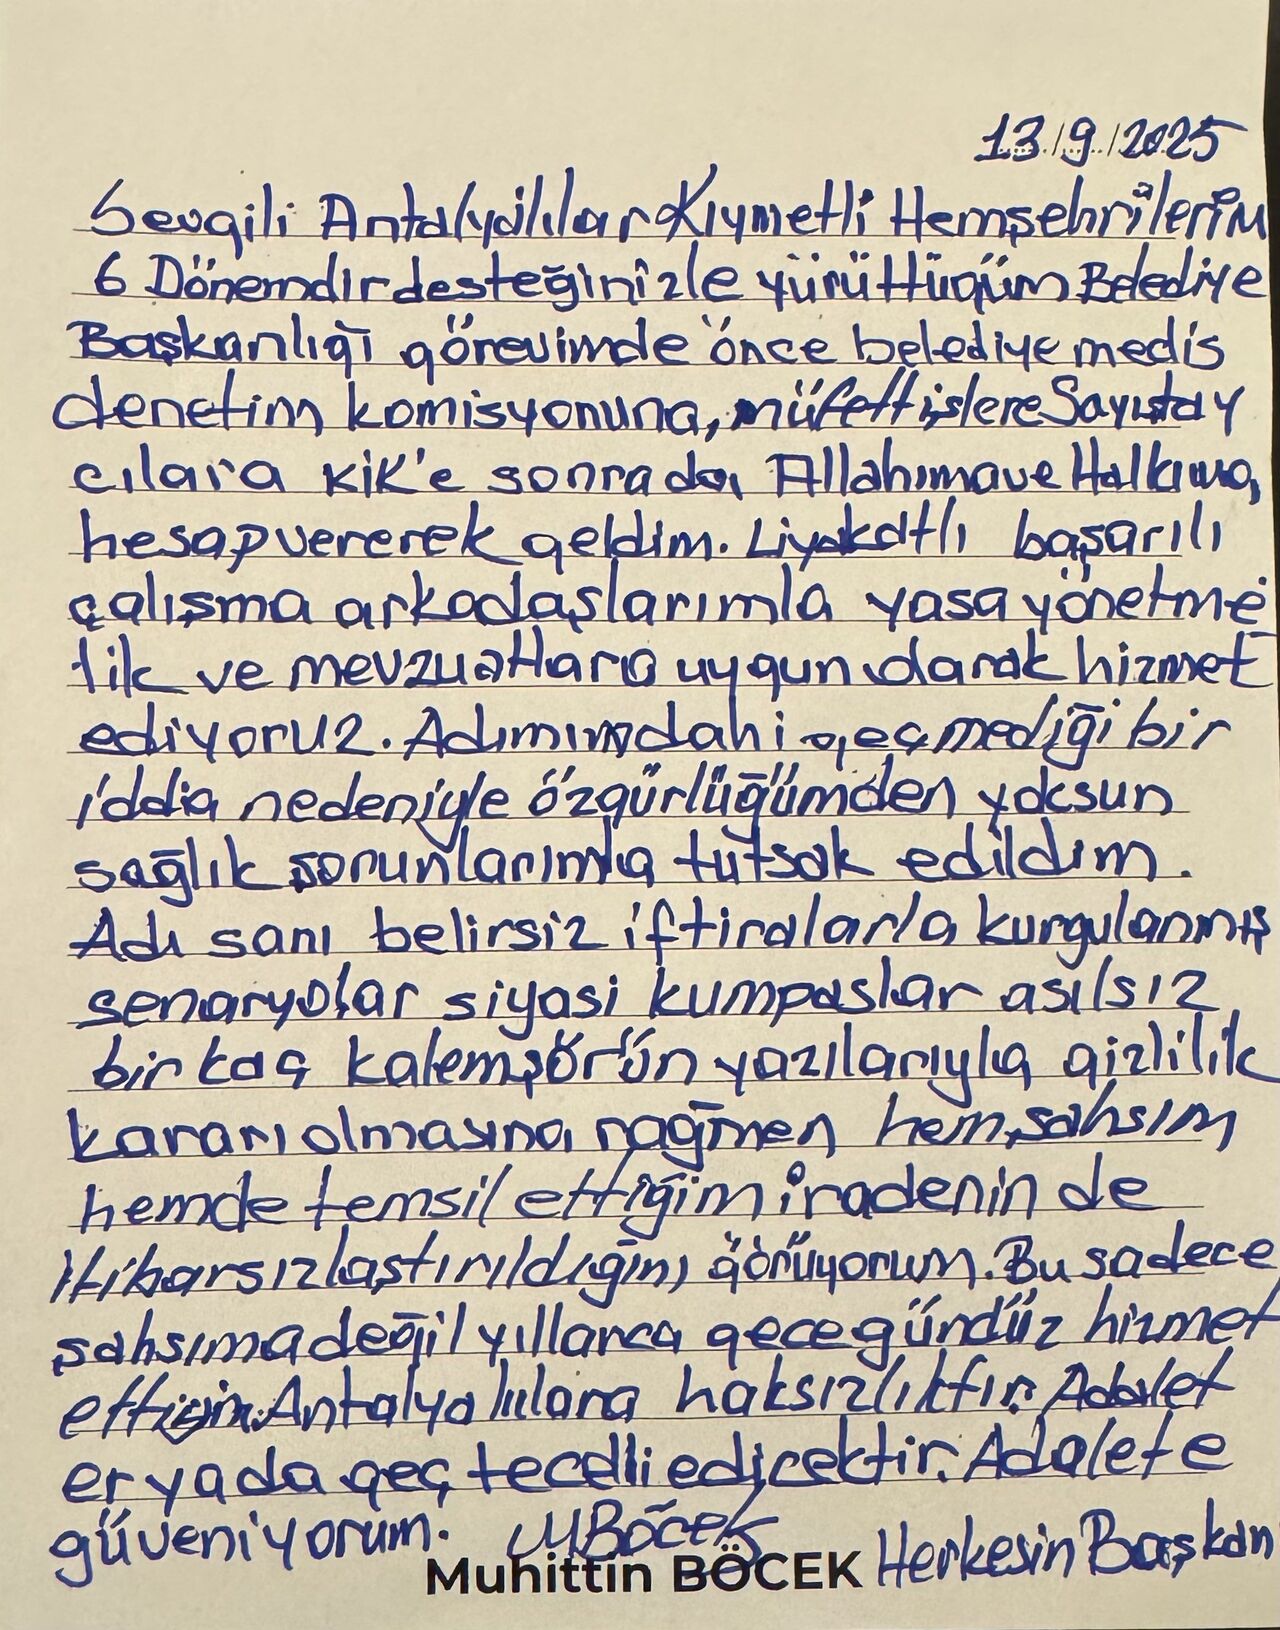 13/9/2025
Sevgili Antalyalılar Kıymetli Hemşehrilerim
6 Dönemdir desteğinizle yürüttüğüm Belediye
Başkanlığı görevimde önce belediye meclis
denetim komisyonuna, müfettişlere Sayıştay
cılara KİK'e sonra da Allahımave Halkıma,
hesap vererek geldim. Liyakatlı başarılı
çalışma arkadaşlarımla yasa yönetme
lik ve mevzuatlara uygun olarak hizmet
ediyoruz. Adımın dahi geçmediği bir
iddia nedeniyle özgürlüğümden yoksun
sağlık sorunlarımla tutsak edildim.
Adı sanı belirsiz iftiralarla kurgulanmış
senaryolar siyasi kumpaslar asılsız
bir kaç kalemşör'ün yazılarıyla gizlilik
kararı olmasına rağmen hem şahsım
hemde temsil ettiğim iradenin de
itibarsızlaştırıldığını görüyorum. Bu sadece
şahsıma değil yıllarca gece gündüz hizmet
ettiğim Antalyalılara haksızlıktır. Adalet
er ya da geç tecelli edicektir. Adalete
güveniyorum. MBöcek Herkesin Başkan
Muhittin BÖCEK